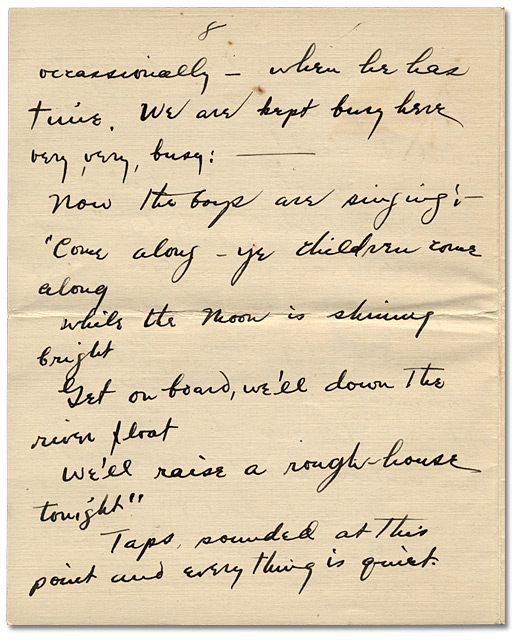 8
occassionally – when he has
time. We are kept busy here
very, very, busy: ——
Now the boys are singing:–
"Come along – ye children come
along
while the Moon is shining
bright
Get on board, we'll down the
river float
We'll raise a rough-house
tonight"
Taps, sounded at this
point and everything is quiet.